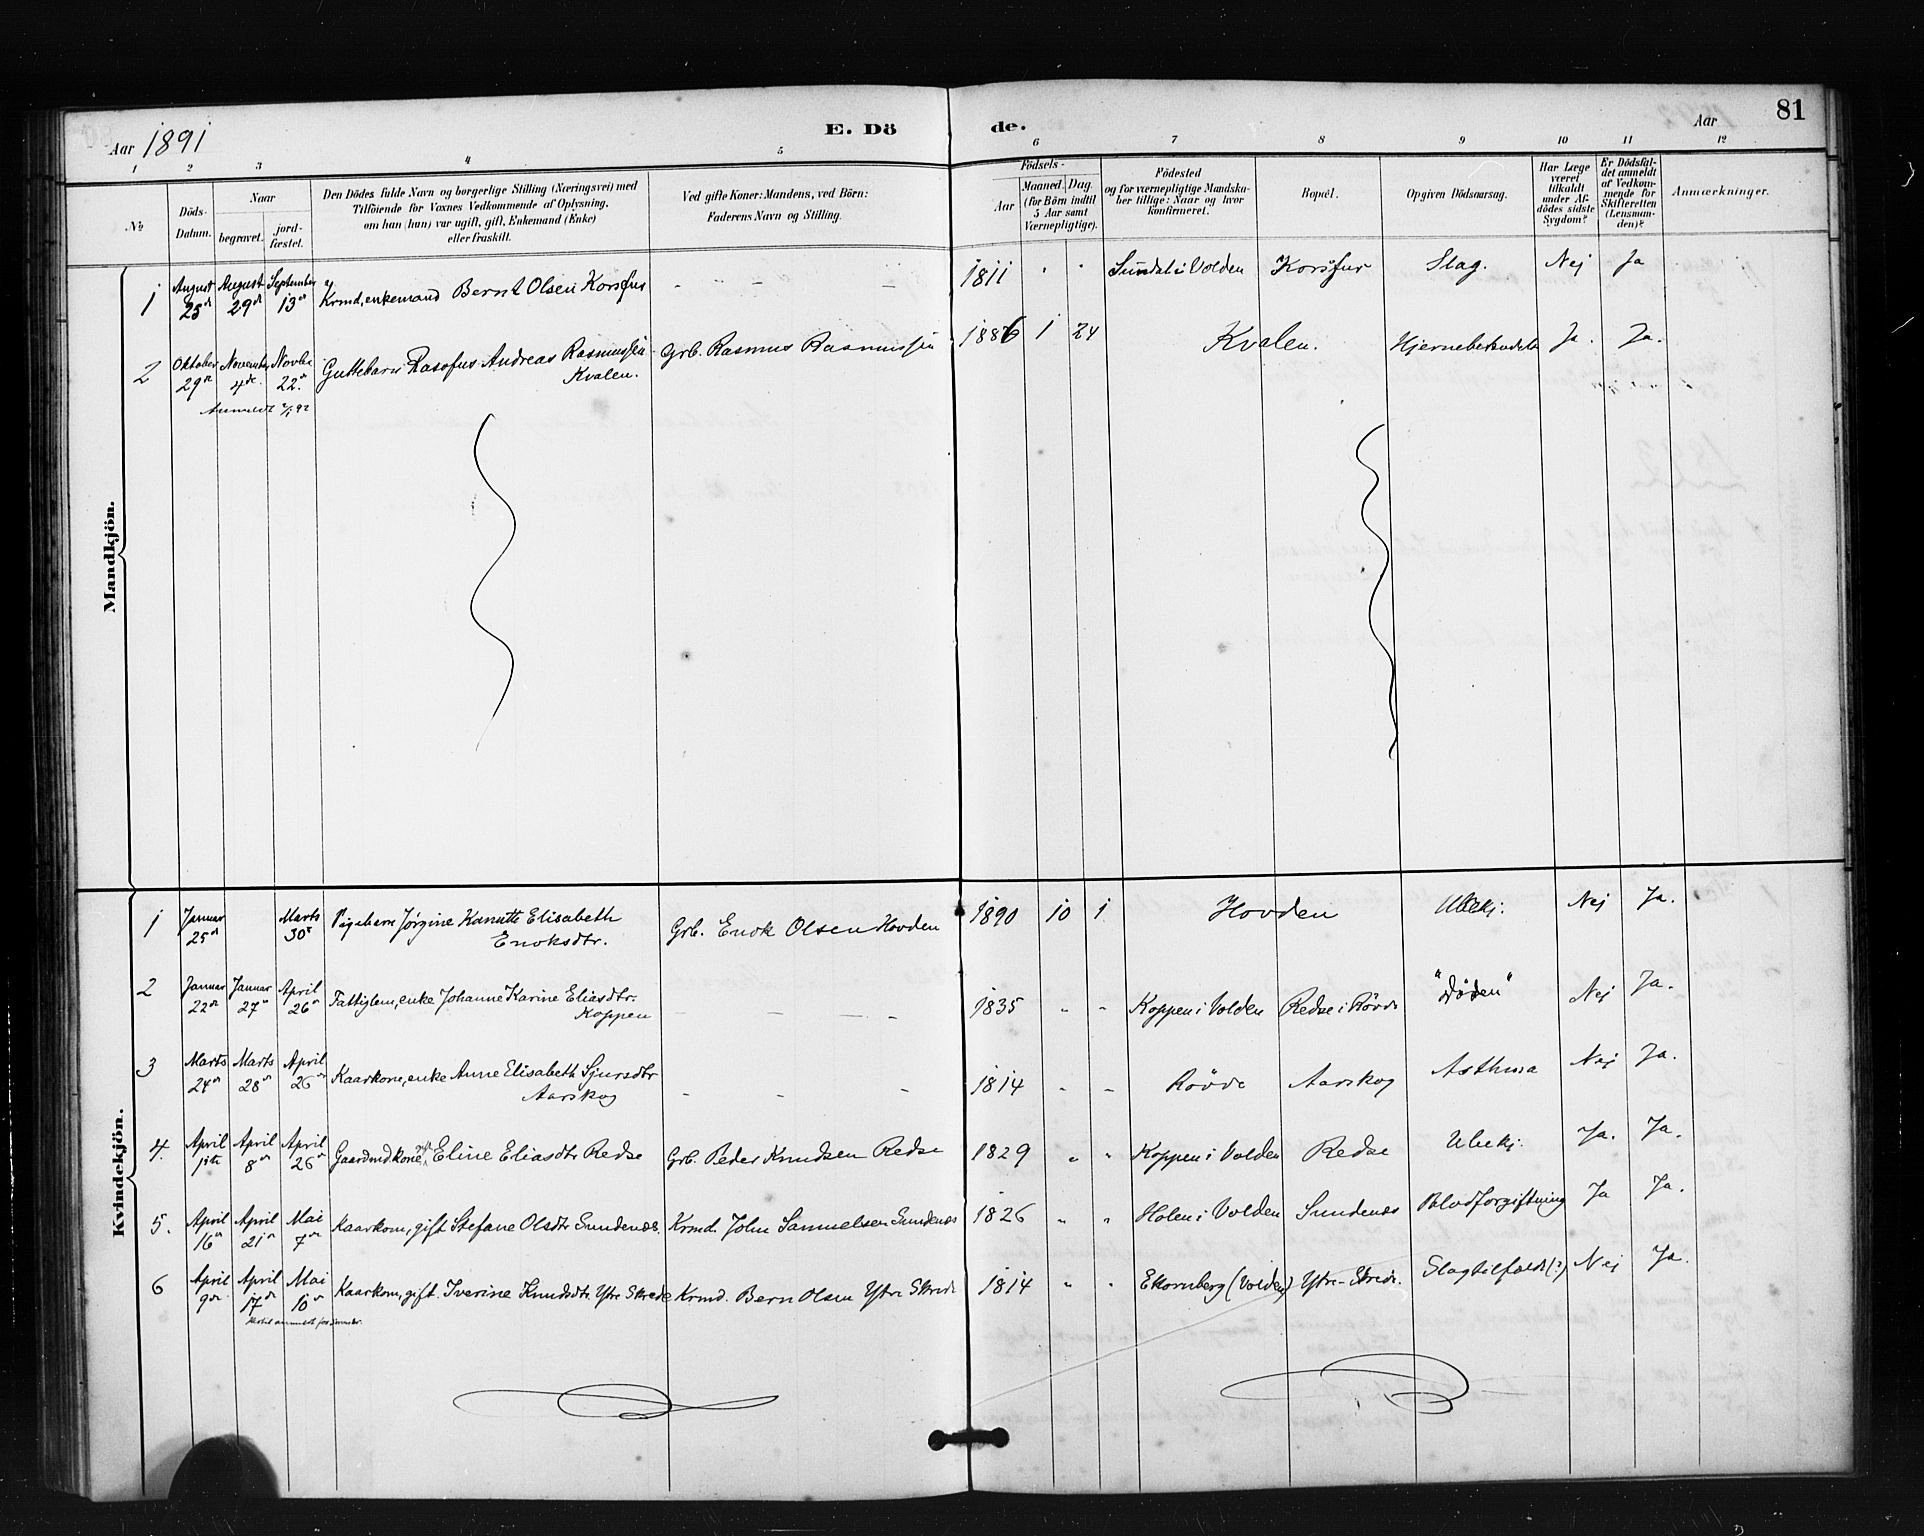 Aar 1891
E. Dö
de.
Aar
81
1 2 3 4 5 6 7 8 9 10 11 12
№
Döds-
Datum.
Naar
begravet.
jord-
fæstet.
Den Dödes fulde Navn og borgerlige Stilling (Næringsvei) med
Tilföiende for Voxnes Vedkommende af Oplysning,
om han (hun) var ugift, gift, Enkemand (Enke)
eller fraskilt.
Ved gifte Koner: Mandens, ved Börn:
Faderens Navn og Stilling.
Födsels-
Aar
Maaned. Dag.
(for Börn indtil
5 Aar samt
Værnepligtige).
Födested
og for værnepligtige Mandska-
ber tillige: Naar og hvor
konfirmeret.
Bopæl.
Opgiven Dödsaarsag.
Har Læge
været
tilkaldt
under Af-
dödes sidste
Sygdom?
Er Dödsfal-
det anmeldt
af Vedkom-
mende for
Skifteretten
(Lensman-
den)?
Anmærkninger.
Mandkjön.
1 August 25de August 29de September 13de Krmd, enkemand Bernt Olsen Korsfur - - - - 1811 " " Sundal i Volden Korsfur Slag. Nej Ja
2 Oktober 29de November 4de Novbr 22de Guttebarn Rasmus Andreas Rasmussen
Kvalen. Grb. Rasmus Rasmussen 1886 1 24 Kvalen. Hjernebetændelse Ja. Ja.
Anmeldt 2/1 92
Kvindekjön.
1 Januar 25de Marts 30te Pigebarn Jørgine Kanutte Elisabeth
Enoksdtr. Grb. Enok Olsen Hovden 1890 10 1 Hovden Ubekj. Nej Ja.
2 Januar 22de Januar 27de April 26de Fattiglem, enke Johanne Karine Eliasdtr.
Koppen - - - - 1835 " " Koppen i Volden Redse i Rövde "Döden" Nej Ja.
3 Marts 24de Marts 28de April 26de Kaarkone, enke Anne Elisabeth Sjursdtr
Aarskog - - - 1814 " " Rövde Aarskog Asthma Nej Ja.
4. April 1ste April 8de April 26de Gaardmdkone gift Eline Eliasdtr Redse Grb. Peder Knudsen Redse 1829 " " Koppen i Volden Redse Ubekj. Ja. Ja.
5. April 16de April 21de Mai 7de Kaarkone, gift Stefane Olsdtr Sundenæs. Krmd. John Samuelsen Sundenæs 1826 " " Holen i Volden Sundenæs Blodforgiftning Ja Ja.
6 April 9de April 17de Mai 10de Kaarkone, gift. Iverine Knudsdtr. Ytre Skrede Krmd. Bernt Olsen Ytre Skrede 1814 " " Ekornberg (Volden) Ytre-Skrede. Slagtilfælde(?) Nej Ja.